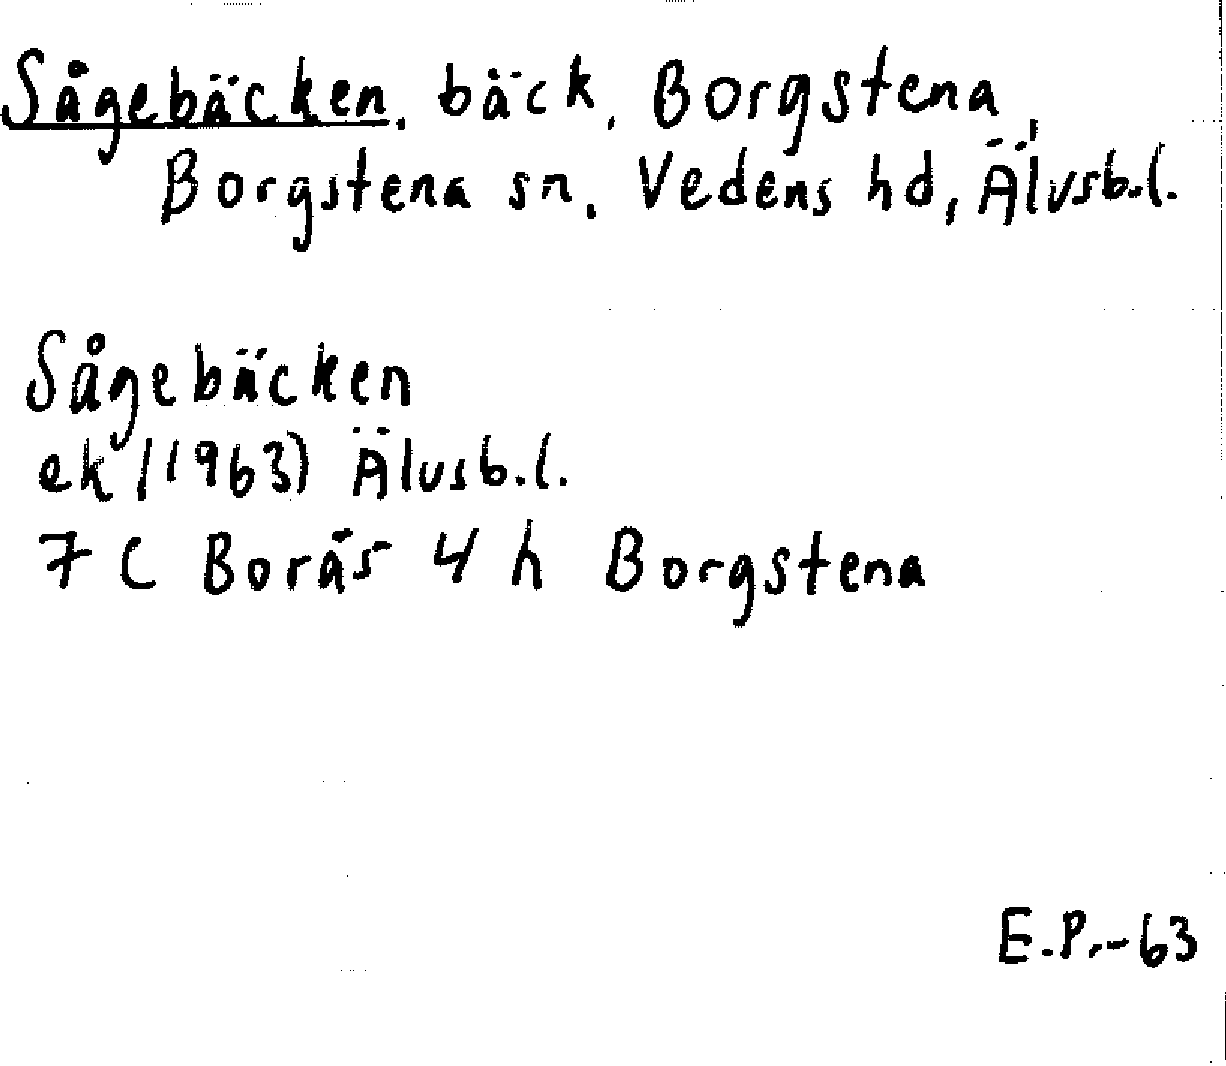 Sågebäcken, bäck, Borgstena,
Borgstena sn, Vedens hd, Älvsb.l.
Sågebäcken
ek/1963) Älvsb.l.
7 C Borås 4 h Borgstena
E.P.-63